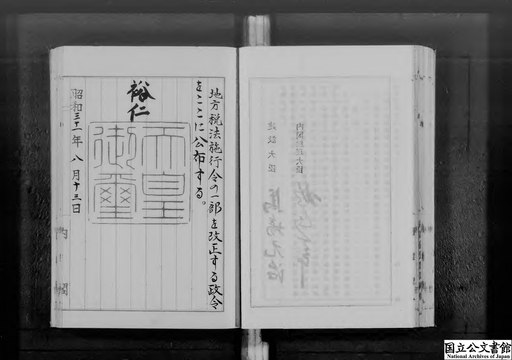 地方税法施行令の一部を改正する政令
をここに公布する。
裕仁
天皇
御璽
昭和三十一年八月十三日
内閣
国立公文書館
National Archives of Japan